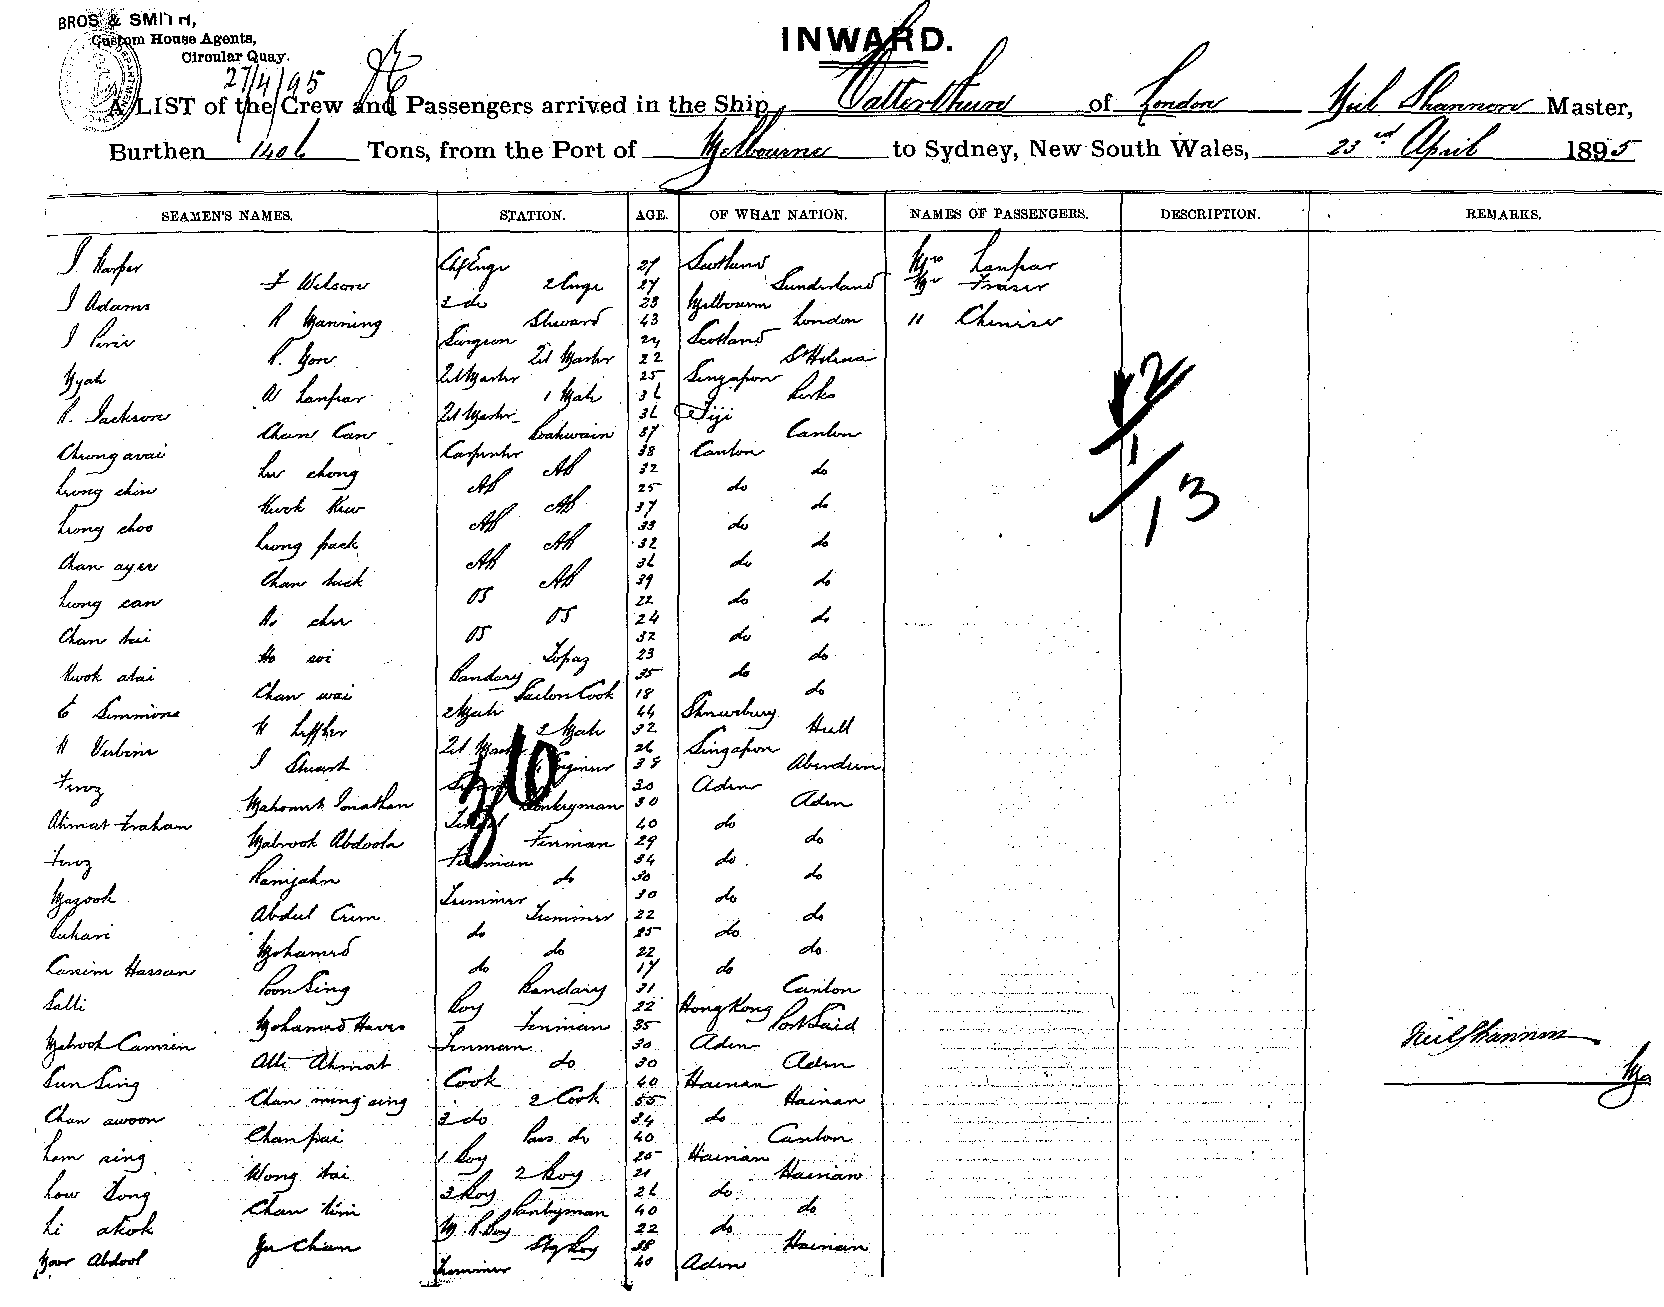 BROS & SMITH,
Custom House Agents,
Circular Quay.
27/4/95
INWARD.
A LIST of the Crew and Passengers arrived in the Ship Catterthun of London Neil Shannon Master,
Burthen 1406 Tons, from the Port of Melbourne to Sydney, New South Wales, 23rd April 1895
SEAMEN'S NAMES. STATION. AGE. OF WHAT NATION. NAMES OF PASSENGERS. DESCRIPTION. REMARKS.
J Harper Chf Engr 27 Scotland Mrs Lanfear
F Wilson 2 Engr 27 Sunderland Mr Fraser
J Adams 3 do 23 Melbourne
R Manning Steward 43 London 11 Chinese
Surgeon 24 Scotland
Qt Master 22 St Helena
Myah Qt Master 25 Singapore
W Lanfear 1 Mate 36
R. Jackson Qt Master 36 Fiji
Chan Can Boatswain 37 Canton
Cheong avai Carpenter 38 Canton
Lee chong AB 32 do
Leong chin AB 25 do
Kwok Kew AB 37 do
Leong choo AB 33 do
Leong pack AB 32 do
Chan ayer AB 36 do
Chan luck AB 39 do
Leong can OS 22 do
Ho chee OS 24 do
Chan tai OS 32 do
Ho soi Topaz 23 do
Kwok atai Bandary 35 do
Chan wai Sailors Cook 18 do
E Simmons 2 Mate 44 Shrewsbury
H Leffler 3 Mate 32 Hull
Qt Master 26 Singapore
J Stuart Engineer 38 Aberdeen
Feroz 30 Aden
Mahomet Jonathan Donkeyman 30 Aden
Ahmat Frahan 40 do
Mabrook Abdoola Fireman 29 do
Feroz Fireman 34 do
Ramjahn do 30 do
Mazook Trimmer 30 do
Abdul Crim Trimmer 22 do
do 25 do
Mohamed do 22 do
Cassim Hassan do 17 do
Poon Sing Bandary 31 Canton
Salli Boy 22 Hong Kong
Fireman 35 Port Said
Fireman 30 Aden
Alli Ahmat do 30 Aden
Sun Sing Cook 40 Hainan
Chan ming sing 2 Cook 55 Hainan
Chan awoon 3 do 34 do
Chan pai do 40 Canton
Lam sing 1 Boy 25 Hainan
Wong tai 2 Boy 21 Hainan
Low Tong 3 Boy 26 do
Chan kim Pantryman 40 do
Li akok M. R. Boy 22 do
Yu Chian Stg Boy 38 Hainan
Abdool Trimmer 40 Aden
12
1
13
36
Neil Shannon